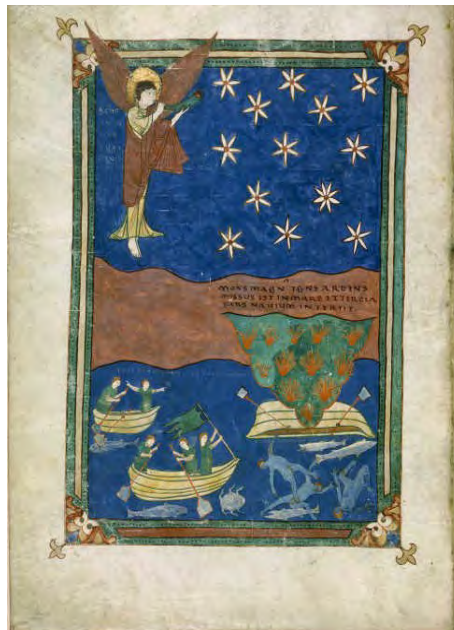 MONS MAGN IGNE ARDENS
MISSUS EST IN MARE ET TERCIA
PARS NAUIUM INTERIIT